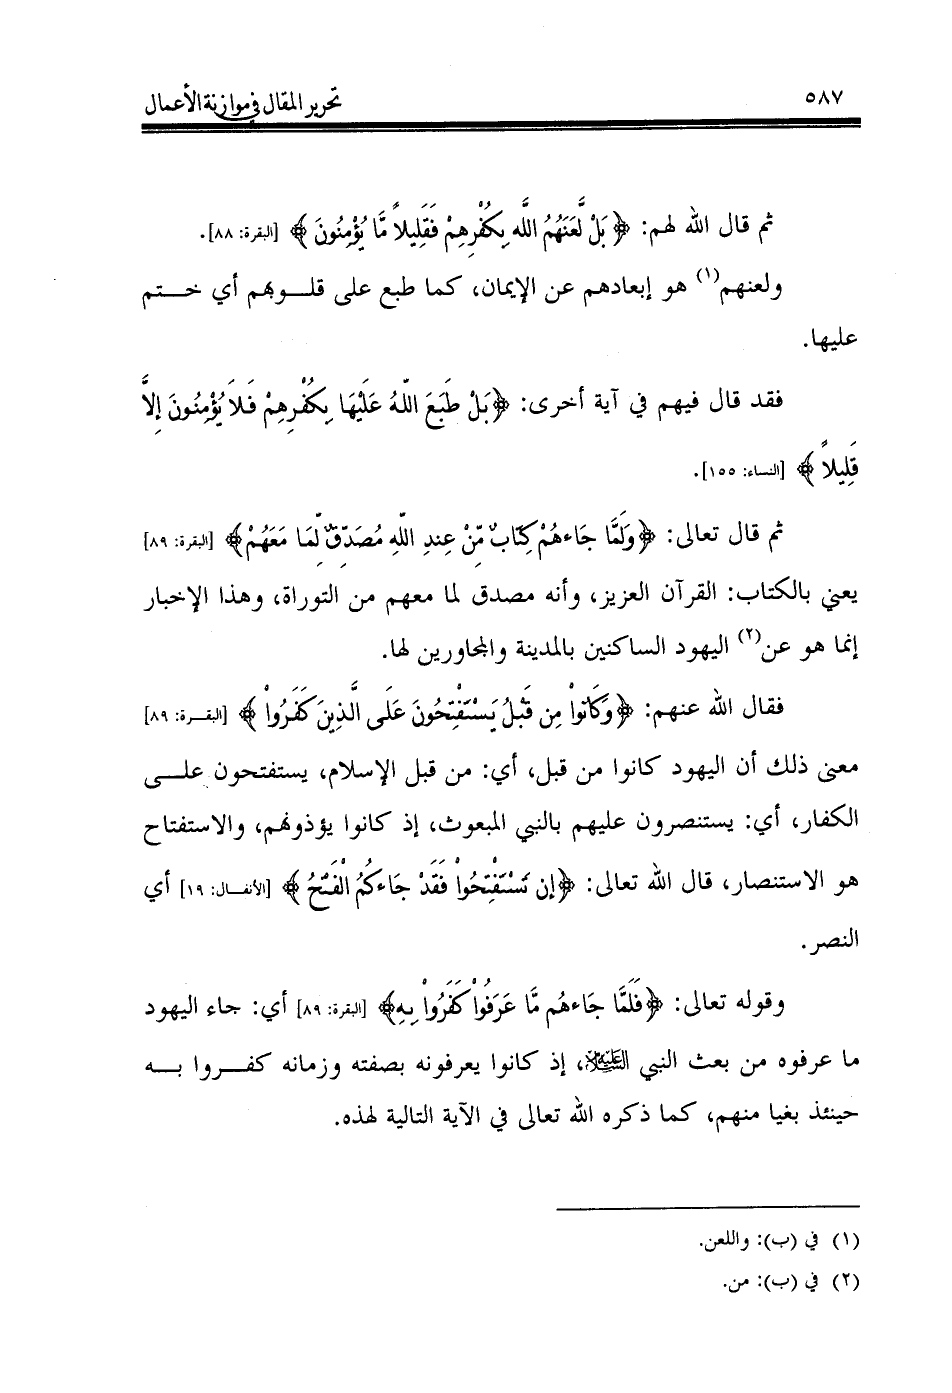 ٥٨٧
تحرير المقال في موازنة الأعمال
ثم قال الله لهم: ﴿بَلْ لَّعَنَهُمُ اللَّه بِكُفْرِهِمْ فَقَلِيلاً مَّا يُؤْمِنُونَ﴾ [البقرة: ٨٨].
ولعنهم(١) هو إبعادهم عن الإيمان، كما طبع على قلوبهم أي ختم
عليها.
فقد قال فيهم في آية أخرى: ﴿بَلْ طَبَعَ اللّهُ عَلَيْهَا بِكُفْرِهِمْ فَلاَ يُؤْمِنُونَ إِلاَّ
قَلِيلاً﴾ [النساء: ١٥٥].
ثم قال تعالى: ﴿وَلَمَّا جَاءهُمْ كِتَابٌ مِّنْ عِندِ اللّهِ مُصَدِّقٌ لِّمَا مَعَهُمْ﴾ [البقرة: ٨٩]
يعني بالكتاب: القرآن العزيز، وأنه مصدق لما معهم من التوراة، وهذا الإخبار
إنما هو عن(٢) اليهود الساكنين بالمدينة والمجاورين لها.
فقال الله عنهم: ﴿وَكَانُواْ مِن قَبْلُ يَسْتَفْتِحُونَ عَلَى الَّذِينَ كَفَرُواْ﴾ [البقرة: ٨٩]
معنى ذلك أن اليهود كانوا من قبل، أي: من قبل الإسلام، يستفتحون على
الكفار، أي: يستنصرون عليهم بالنبي المبعوث، إذ كانوا يؤذونهم، والاستفتاح
هو الاستنصار، قال الله تعالى: ﴿إِن تَسْتَفْتِحُواْ فَقَدْ جَاءكُمُ الْفَتْحُ﴾ [الأنفال: ١٩] أي
النصر.
وقوله تعالى: ﴿فَلَمَّا جَاءهُم مَّا عَرَفُواْ كَفَرُواْ بِهِ﴾ [البقرة: ٨٩] أي: جاء اليهود
ما عرفوه من بعث النبي العَلَيْهِ السَّلَام، إذ كانوا يعرفونه بصفته وزمانه كفروا به
حينئذ بغيا منهم، كما ذكره الله تعالى في الآية التالية لهذه.
(١) في (ب): واللعن.
(٢) في (ب): من.